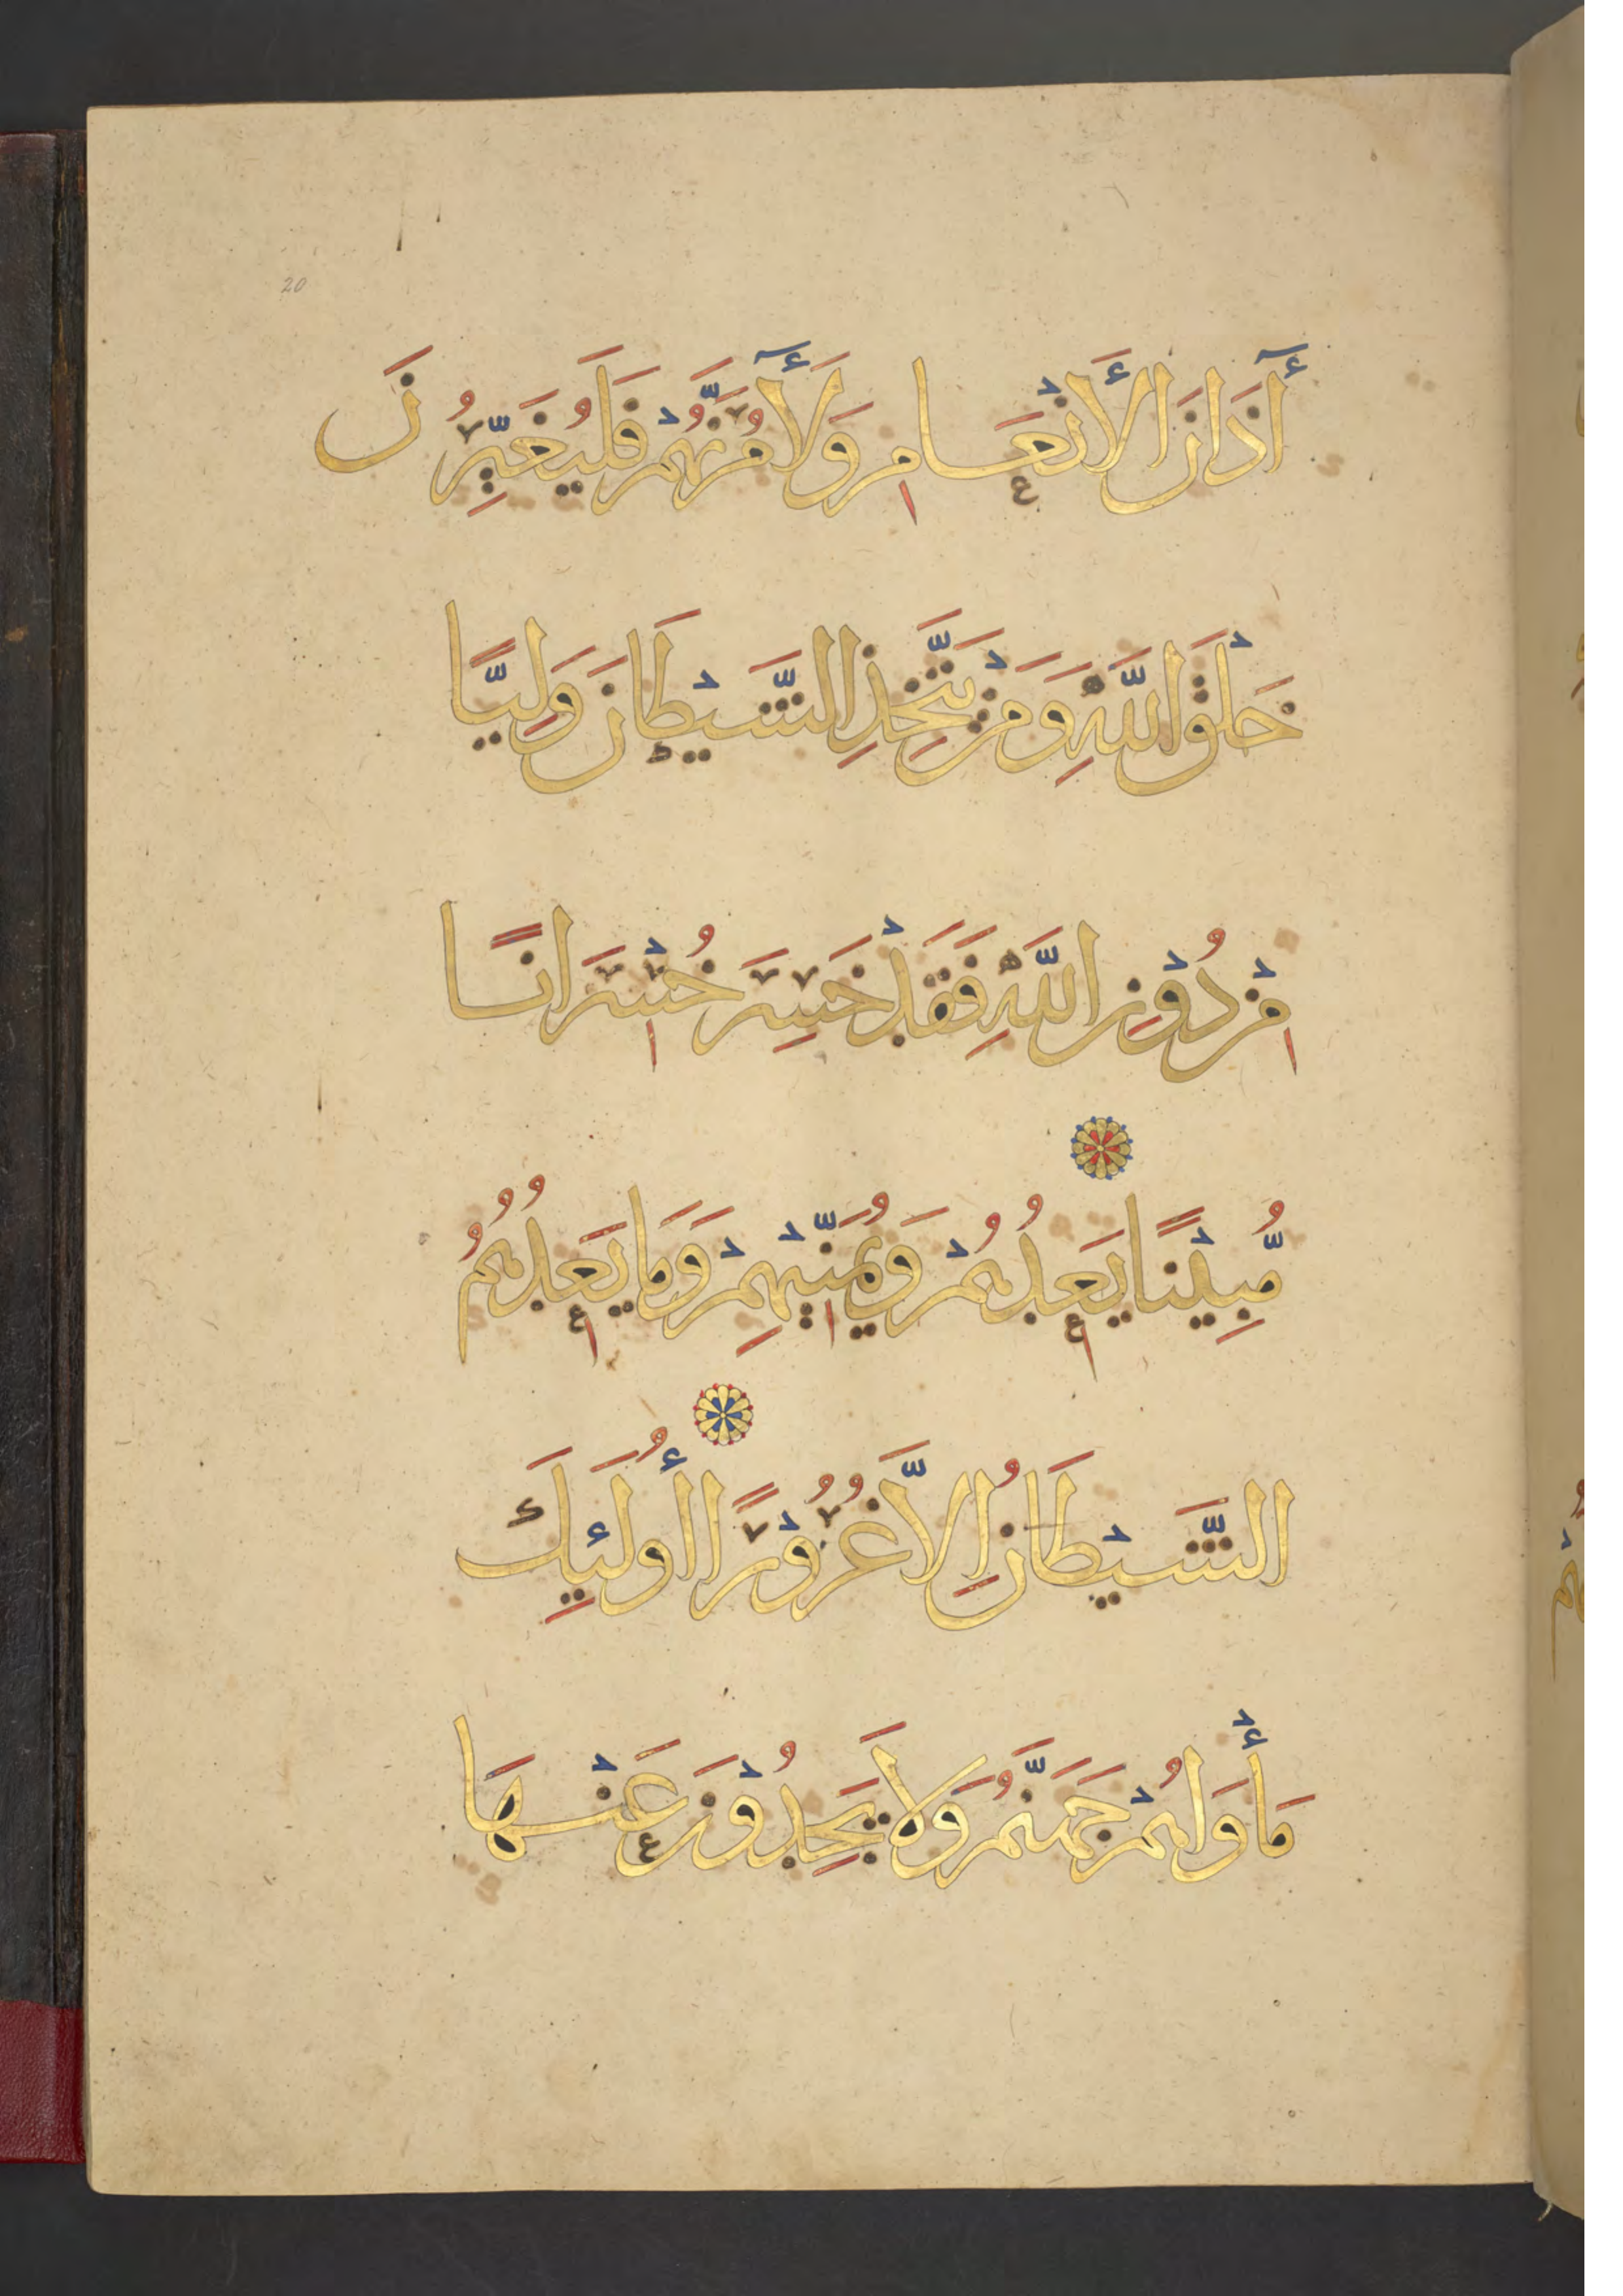 20
آذَانَ الأَنْعَامِ وَلَآمُرَنَّهُمْ فَلَيُغَيِّرُنَّ
خَلْقَ اللَّهِ وَمَنْ يَتَّخِذِ الشَّيْطَانَ وَلِيًّا
مِنْ دُوْنِ اللَّهِ فَقَدْ خَسِرَ خُسْرَانًا
مُّبِيْنًا يَعِدُهُمْ وَيُمَنِّيْهِمْ وَمَا يَعِدُهُمُ
الشَّيْطَانُ إِلَّا غُرُوْرًا أُولَئِكَ
مَأْوَاهُمْ جَهَنَّمُ وَلَا يَجِدُوْنَ عَنْهَا